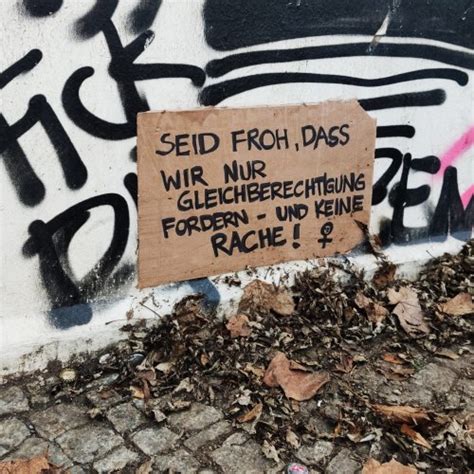 FICK
SEID FROH, DASS
WIR NUR
GLEICHBERECHTIGUNG
FORDERN - UND KEINE
RACHE! ♀